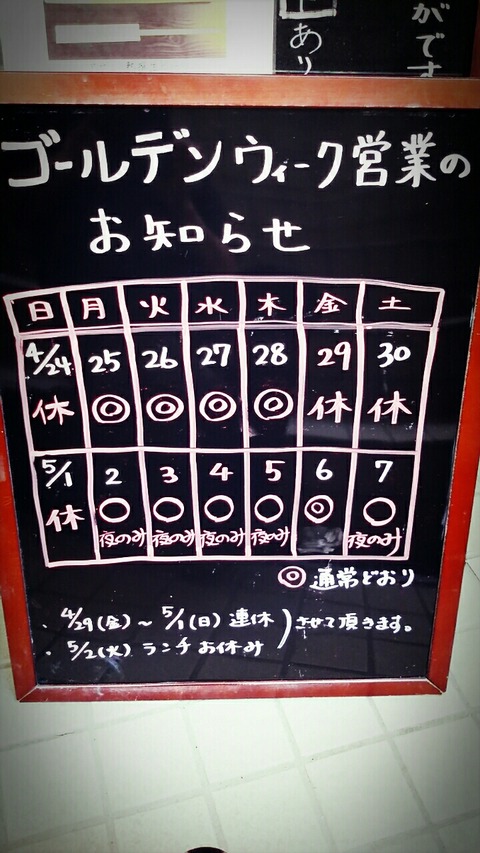 あり
がです
ゴールデンウィーク営業の
お知らせ
日 月 火 水 木 金 土
4/24 25 26 27 28 29 30
休 ◎ ◎ ◎ ◎ 休 休
5/1 2 3 4 5 6 7
休 ○ ○ ○ ○ ◎ ○
夜のみ 夜のみ 夜のみ 夜のみ 夜のみ
◎通常どおり
・4/29(金)〜5/1(日) 連休
・5/2(火) ランチお休み
)させて頂きます。